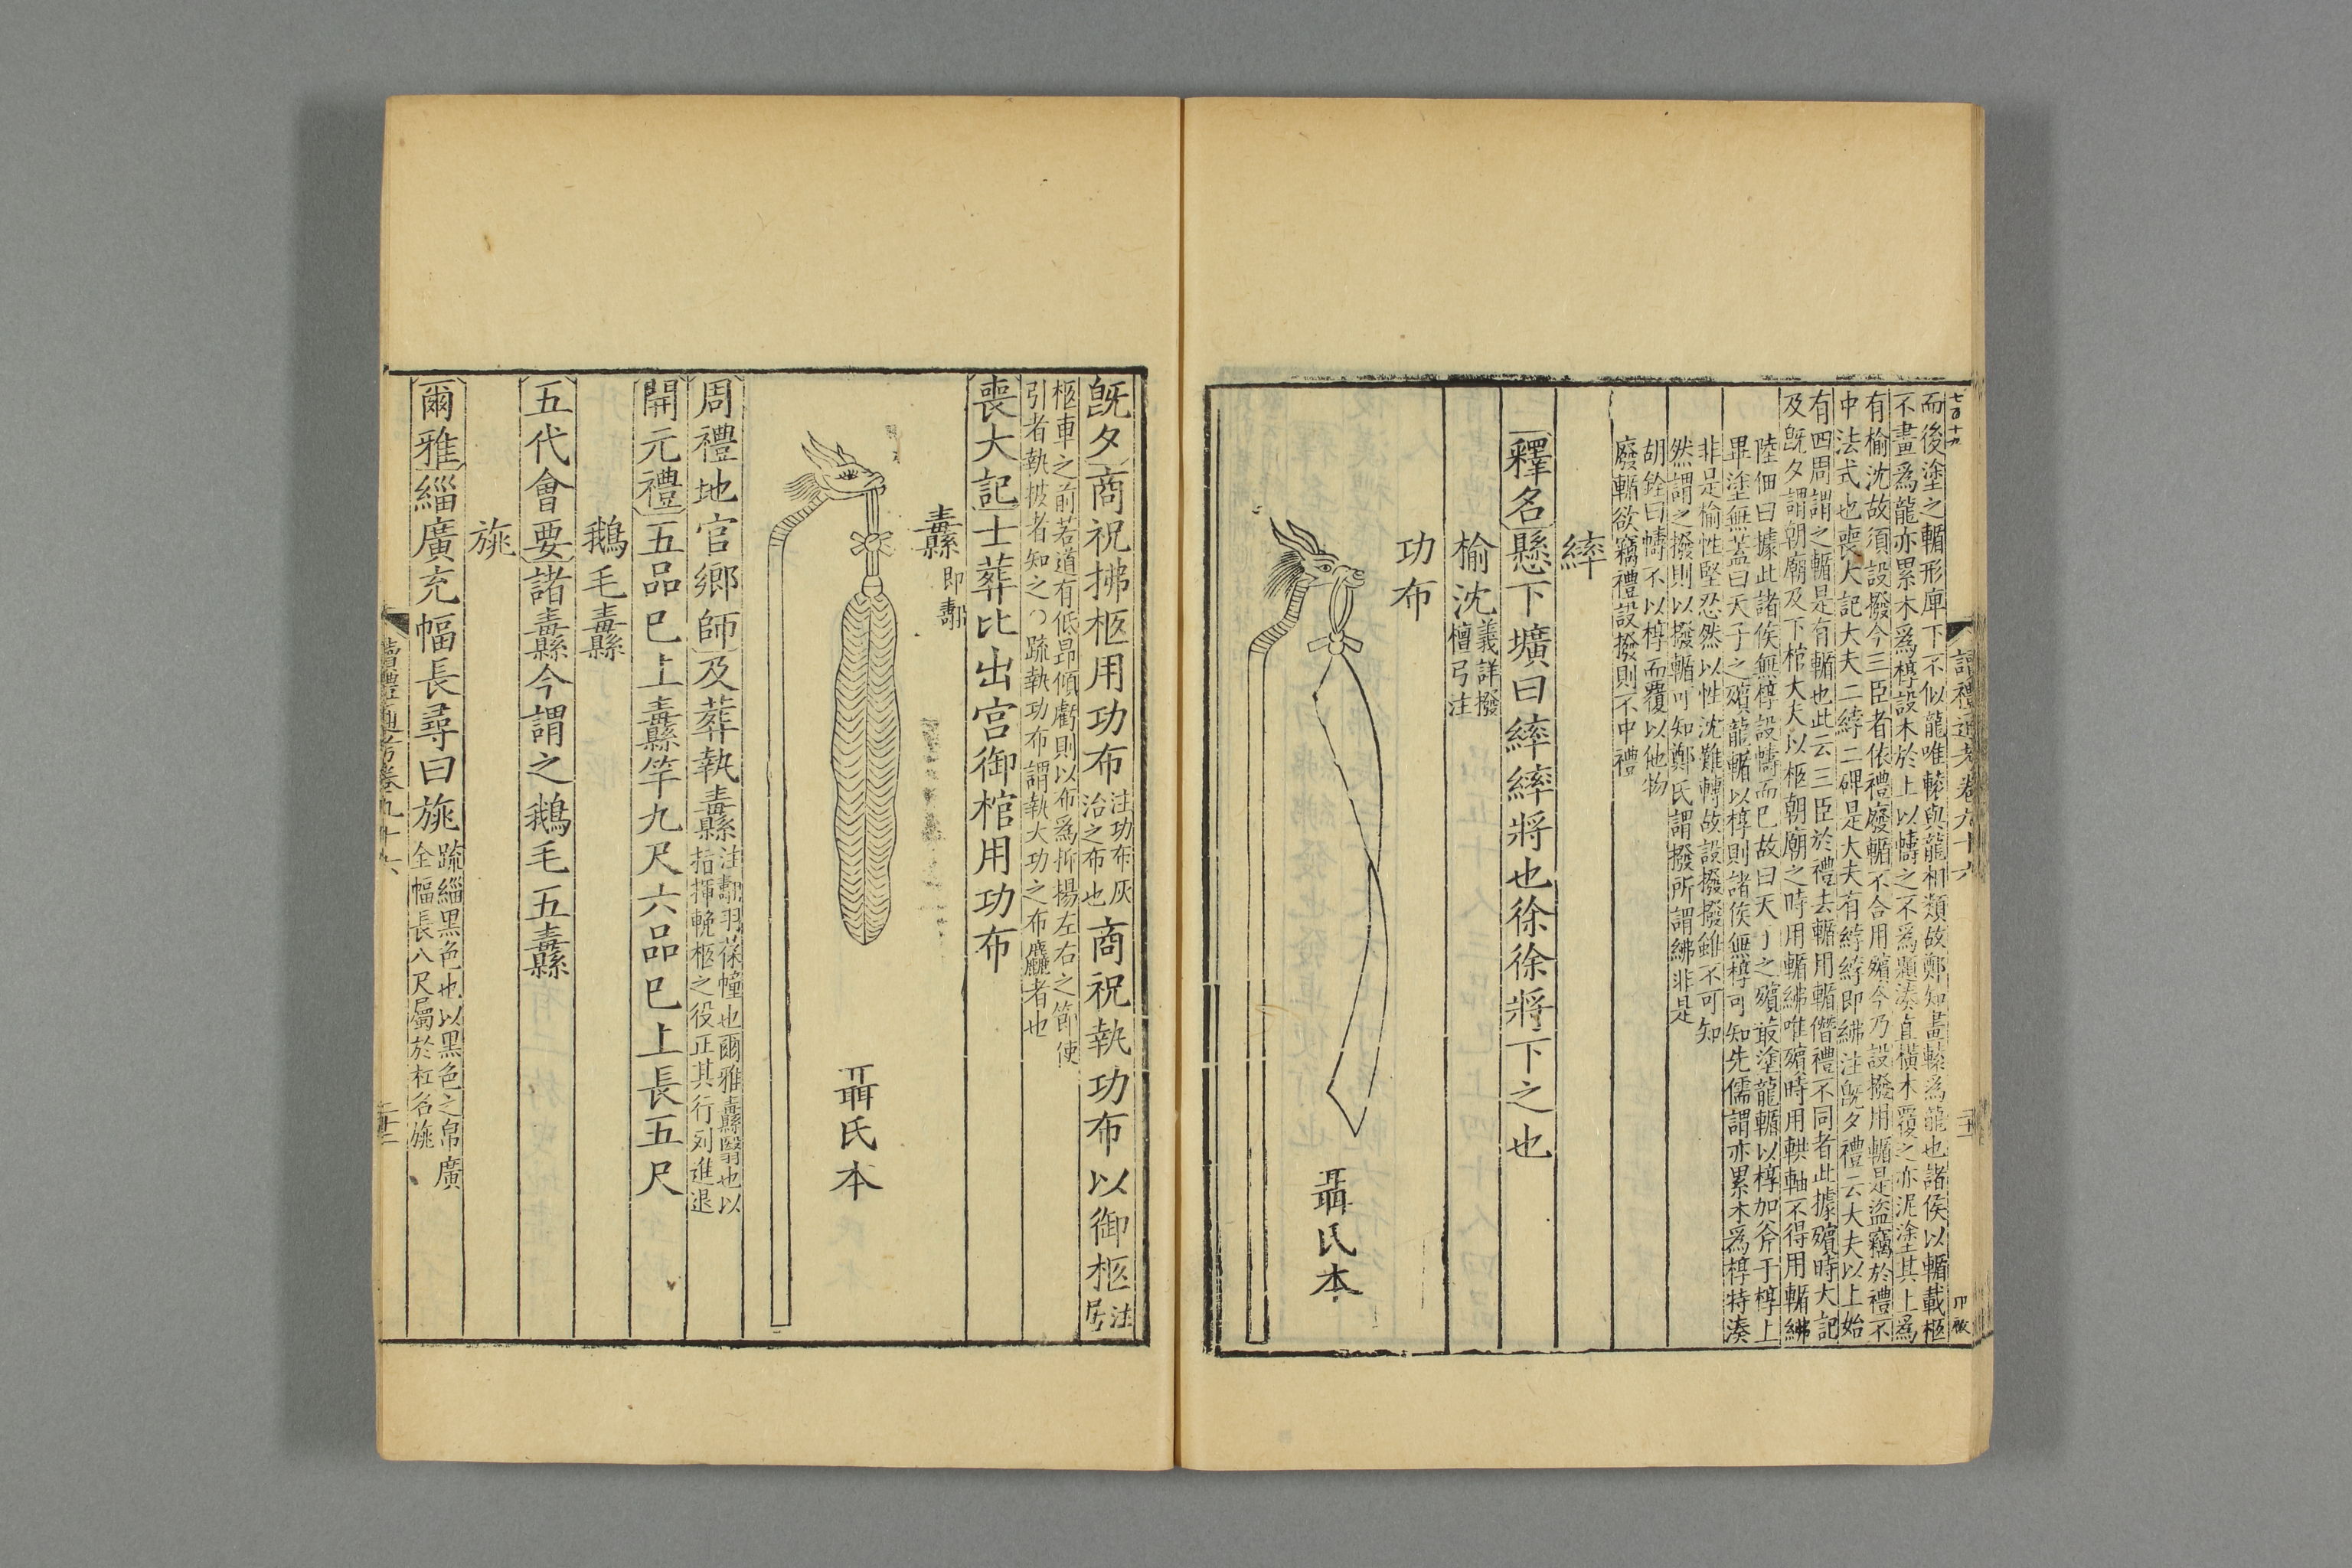 七百十九
而後塗之輴形庳下不似龍唯轅與龍相類故鄭知畫轅爲龍也諸侯以輴載柩
不畫爲龍亦累木爲椁設木於上以幬之不爲題湊直橫木覆之亦泥塗其上爲
有榆沈故須設撥今三臣者依禮廢輴不合用殯今乃設撥用輴是盜竊於禮不
中法式也喪大記大夫二綍二碑是大夫有綍綍即紼注旣夕禮云大夫以上始
有四周謂之輴是有輴也此云三臣於禮去輴用輴僭禮不同者此據殯時大記
及旣夕謂朝廟及下棺大夫以柩朝廟之時用輴紼唯殯時用輁軸不得用輴紼
陸佃曰據此諸侯無椁設幬而已故曰天子之殯菆塗龍輴以椁加斧于椁上
畢塗無蓋曰天子之殯龍輴以椁則諸侯無椁可知先儒謂亦累木爲椁特湊
非是榆性堅忍然以性沈難轉故設撥撥雖不可知
然謂之撥則以撥輴可知鄭氏謂撥所謂紼非是
胡銓曰幬不以椁而覆以他物
廢輴欲竊禮設撥則不中禮
繂
釋名懸下壙曰繂繂將也徐徐將下之也
榆沈 義詳撥
檀弓注
功布
聶氏本
旣夕商祝拂柩用功布 注功布灰
治之布也 商祝執功布以御柩 注
居
柩車之前若道有低昂傾虧則以布爲抑揚左右之節使
引者執披者知之○疏執功布謂執大功之布麤者也
喪大記士葬比出宮御棺用功布
纛 即翿
聶氏本
周禮地官鄉師及葬執纛 注翿羽葆幢也爾雅纛翳也以
指揮輓柩之役正其行列進退
開元禮五品已上纛竿九尺六品已上長五尺
鵝毛纛
五代會要諸纛今謂之鵝毛五纛
旐
爾雅緇廣充幅長尋曰旐 疏緇黑色也以黑色之帛廣
全幅長八尺屬於杠名旐
讀禮通考卷九十六